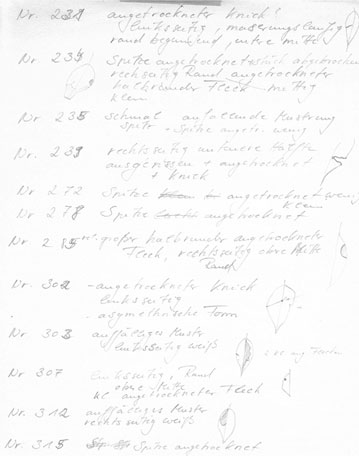 Nr. 231 angetrockneter Knick!
linksseitig, maserungsläufig
rand beginnend, untere Mitte
Nr. 234 Spitze angetrocknet + Stück abgebrochen
rechtsseitig Rand angetrockneter
halbrunder Fleck mittig
klein
Nr 235 schmal auffallende Musterung
spitz - Spitze angetr. wenig
Nr. 239 rechtsseitig untere Hälfte
ausgerissen + angetrocknet
+ Knick
Nr 272 Spitze angetrocknet wenig
klein
Nr 278 Spitze angetrocknet
Nr. 285 großer halbrunder angetrockneter
Fleck, rechtsseitig obere Mitte
Rand
Nr. 302 - angetrockneter Knick
linksseitig
- asymetrische Form
Nr 303 auffälliges Muster
linksseitig weiß
Nr 307 linksseitig, Rand
obere Mitte
kl angetrockneter Fleck
Nr. 312 auffälliges Muster
rechtsseitig weiß
Nr. 315 Spitze angetrocknet